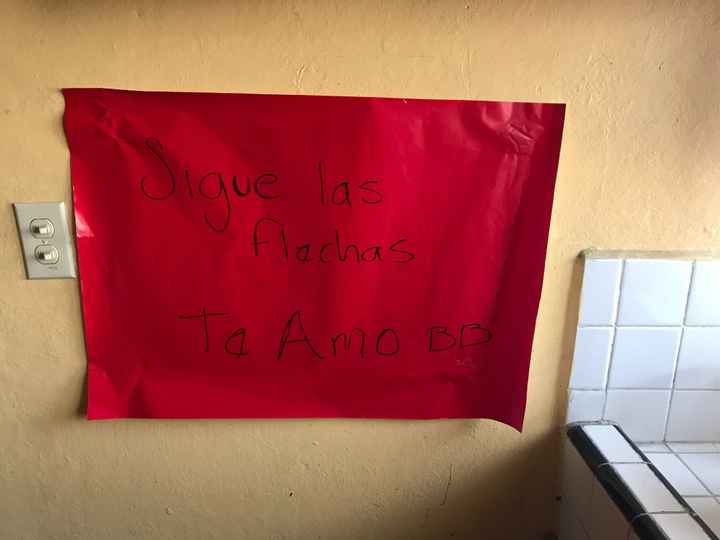 Sigue las
flechas
Te Amo BB